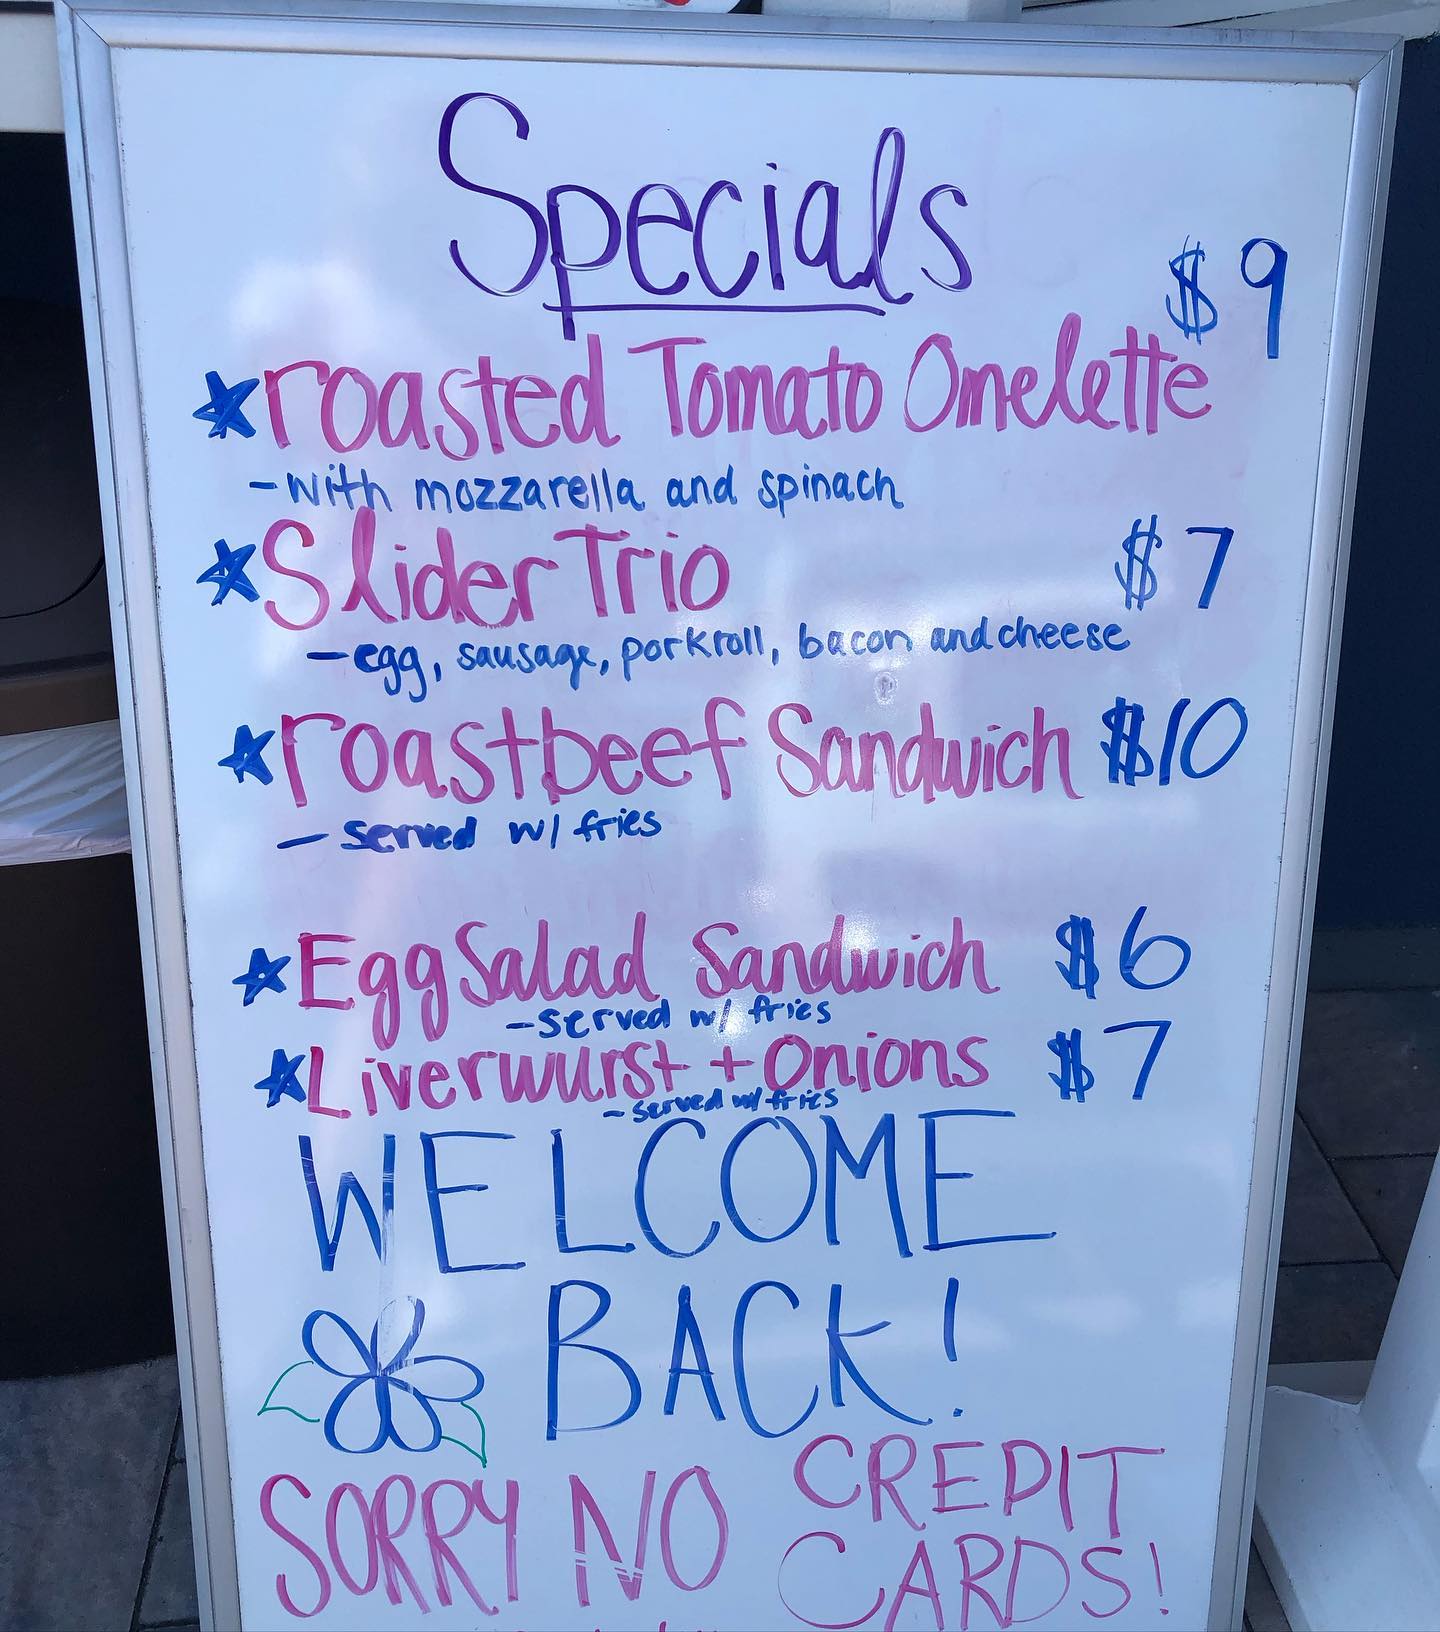 Specials
$9
roasted Tomato Omelette
-with mozzarella and spinach
Slider Trio $7
-egg, sausage, porkroll, bacon and cheese
roastbeef Sandwich $10
- served w/ fries
Egg Salad Sandwich $6
-served w/ fries
Liverwurst + Onions $7
-served w/ fries
WELCOME
BACK!
SORRY NO CREDIT
CARDS!